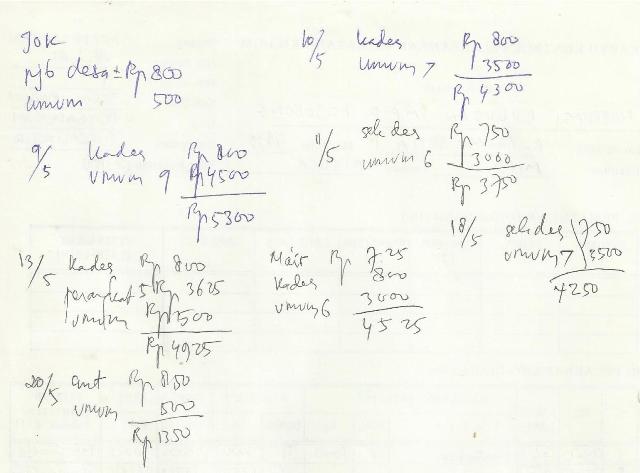 JOK
pjb desa ± Rp 800
umum 500
9/5 kades Rp 800
umum 9 Rp 4500
Rp 5300
10/5 kades Rp 800
umum 7 3500
Rp 4300
11/5 sekdes Rp 750
umum 6 3000
Rp 3750
18/5 sekdes 750
umum 7 3500
4250
13/5 kades Rp 800
perangkat 5 Rp 3625
umum Rp 500
Rp 4925
Rp 725
kades 800
umum 6 3000
4525
20/5 Rp 850
umum 500
Rp 1350